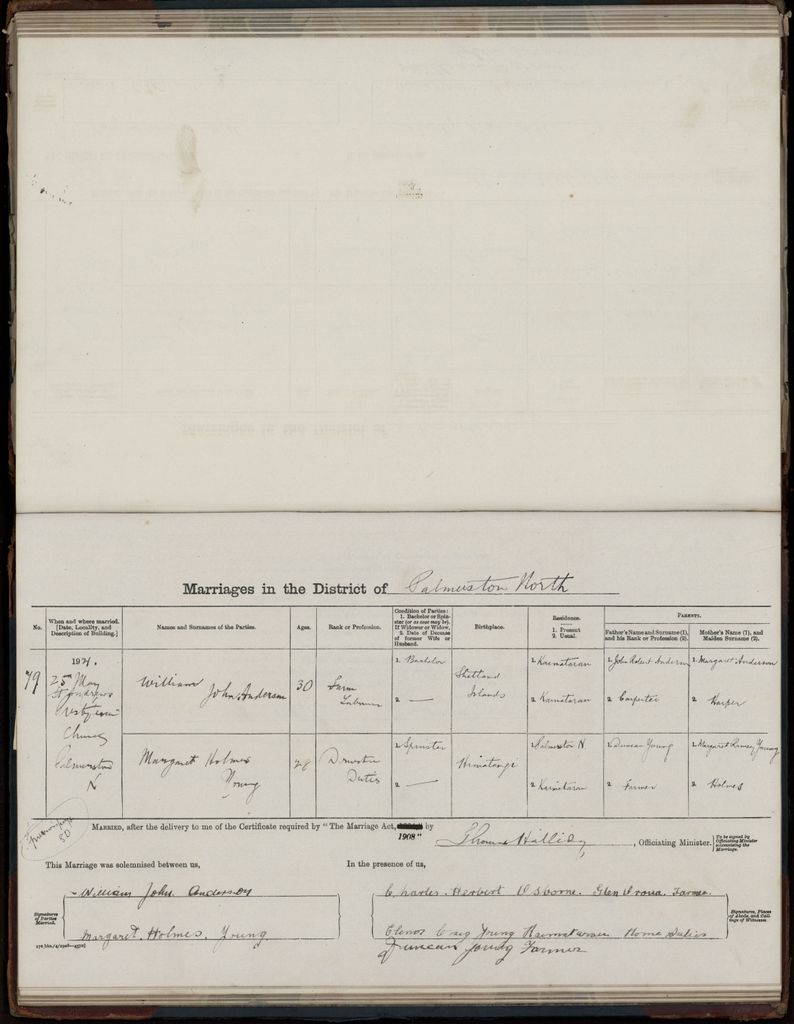 Marriages in the District of Palmerston North
No.
When and where married. [Date, Locality, and Description of Building.]
Names and Surnames of the Parties.
Ages.
Rank or Profession.
Condition of Parties: 1. Bachelor or Spinster (or as case may be). If Widower or Widow, 2. Date of Decease of former Wife or Husband.
Birthplace.
Residence. 1. Present 2. Usual.
PARENTS.
Father's Name and Surname (1), and his Rank or Profession (2).
Mother's Name (1), and Maiden Surname (2).
79
25 May
St Andrews
Church
Palmerston
N
William John Anderson
30
Farm
1. Bachelor
2 —
Shetland
Islands
1
2
1. John Robert Anderson
2 Carpenter
1. Margaret Anderson
2 Harper
Margaret Holmes
Young
28
Domestic
Duties
1. Spinster
2 —
1. Palmerston N.
2
1. Duncan Young
2 Farmer
1. Margaret Ramsay Young
2 Holmes
80
MARRIED, after the delivery to me of the Certificate required by "The Marriage Act, 1908" by
Thomas Halliday, Officiating Minister.
[To be signed by Officiating Minister solemnizing the Marriage.
This Marriage was solemnised between us,
In the presence of us,
Signatures of Parties Married.
William John Anderson
Margaret Holmes Young
Charles Herbert Osborne. Glen Oroua. Farmer.
Craig Young Home Duties
Duncan Young Farmer
Signatures, Places of Abode, and Callings of Witnesses.